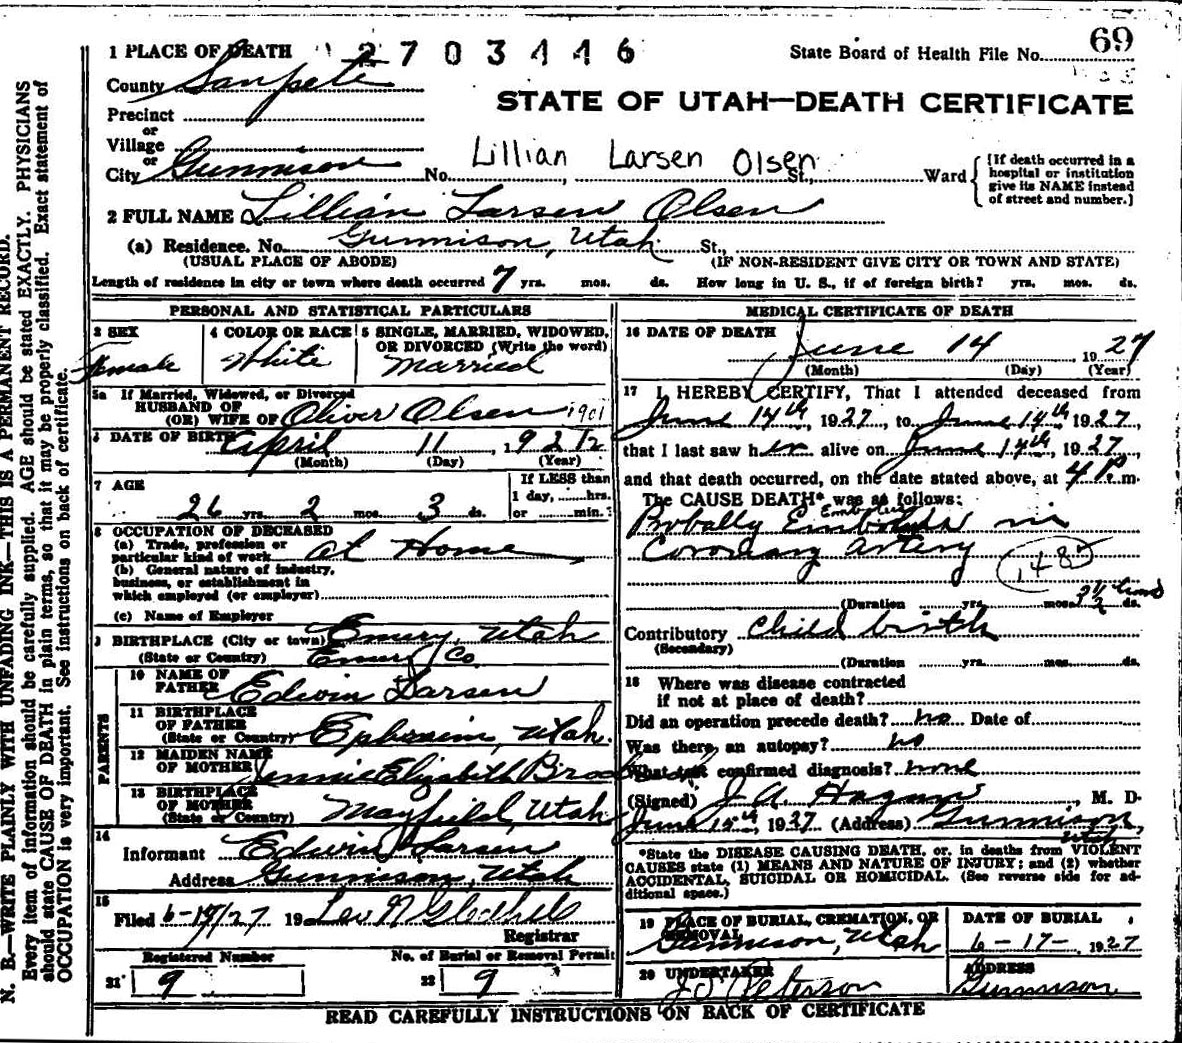 1 PLACE OF DEATH 2703446 State Board of Health File No. 69
County Sanpete
STATE OF UTAH—DEATH CERTIFICATE
Precinct
or
Village
or
City Gunnison No. Lillian Larsen Olsen St., Ward
[If death occurred in a
hospital or institution
give its NAME instead
of street and number.]
2 FULL NAME Lillian Larsen Olsen
(a) Residence. No. Gunnison, Utah. St.,
(USUAL PLACE OF ABODE) (IF NON-RESIDENT GIVE CITY OR TOWN AND STATE)
Length of residence in city or town where death occurred 7 yrs. mos. ds. How long in U. S., if of foreign birth? yrs. mos. ds.
PERSONAL AND STATISTICAL PARTICULARS
3 SEX
Female
4 COLOR OR RACE
White
5 SINGLE, MARRIED, WIDOWED,
OR DIVORCED (Write the word)
Married
5a If Married, Widowed, or Divorced
HUSBAND OF
(OR) WIFE OF Oliver Olsen 1901
6 DATE OF BIRTH April 11, 19
(Month) (Day) (Year)
7 AGE
26 yrs. 2 mos. 3 ds.
If LESS than
1 day, hrs.
or min.?
8 OCCUPATION OF DECEASED
(a) Trade, profession or
particular kind of work At Home
(b) General nature of industry,
business, or establishment in
which employed (or employer)
(c) Name of Employer
9 BIRTHPLACE (City or town) Emery, Utah
(State or Country) Emery Co.
PARENTS
10 NAME OF
FATHER Edwin Larsen
11 BIRTHPLACE
OF FATHER
(State or Country) Ephraim, Utah.
12 MAIDEN NAME
OF MOTHER Jennie Elizabeth
13 BIRTHPLACE
OF MOTHER
(State or Country) Mayfield, Utah
14
Informant Edwin Larsen
Address Gunnison, Utah
15
Filed 6-15/27 19
Registrar
Registered Number
21 9
No. of Burial or Removal Permit
22 9
MEDICAL CERTIFICATE OF DEATH
16 DATE OF DEATH
June 14 1927
(Month) (Day) (Year)
17 I HEREBY CERTIFY, That I attended deceased from
June 14th, 1927, to June 14th 1927,
that I last saw her alive on June 14th, 1927,
and that death occurred, on the date stated above, at 4 P. m.
The CAUSE DEATH* was as follows:
Probally Embolus in
Coronary artery
148
(Duration yrs. mos. ds.
Contributory Child birth
(Secondary)
(Duration yrs. mos. ds.
18 Where was disease contracted
if not at place of death?
Did an operation precede death? no Date of
Was there an autopay? no
What test confirmed diagnosis? none
(Signed) J A Hagan, M. D.
June 15th, 1927 (Address) Gunnison,
Utah
*State the DISEASE CAUSING DEATH, or, in deaths from VIOLENT
CAUSES state (1) MEANS AND NATURE OF INJURY; and (2) whether
ACCIDENTAL, SUICIDAL OR HOMICIDAL. (See reverse side for ad-
ditional space.)
19 PLACE OF BURIAL, CREMATION, OR
REMOVAL
Gunnison, Utah
DATE OF BURIAL
6-17- 1927
20 UNDERTAKER
J S Peterson
ADDRESS
Gunnison
READ CAREFULLY INSTRUCTIONS ON BACK OF CERTIFICATE
N. B.—WRITE PLAINLY WITH UNFADING INK—THIS IS A PERMANENT RECORD.
Every item of information should be carefully supplied. AGE should be stated EXACTLY. PHYSICIANS
should state CAUSE OF DEATH in plain terms, so that it may be properly classified. Exact statement of
OCCUPATION is very important. See instructions on back of certificate.